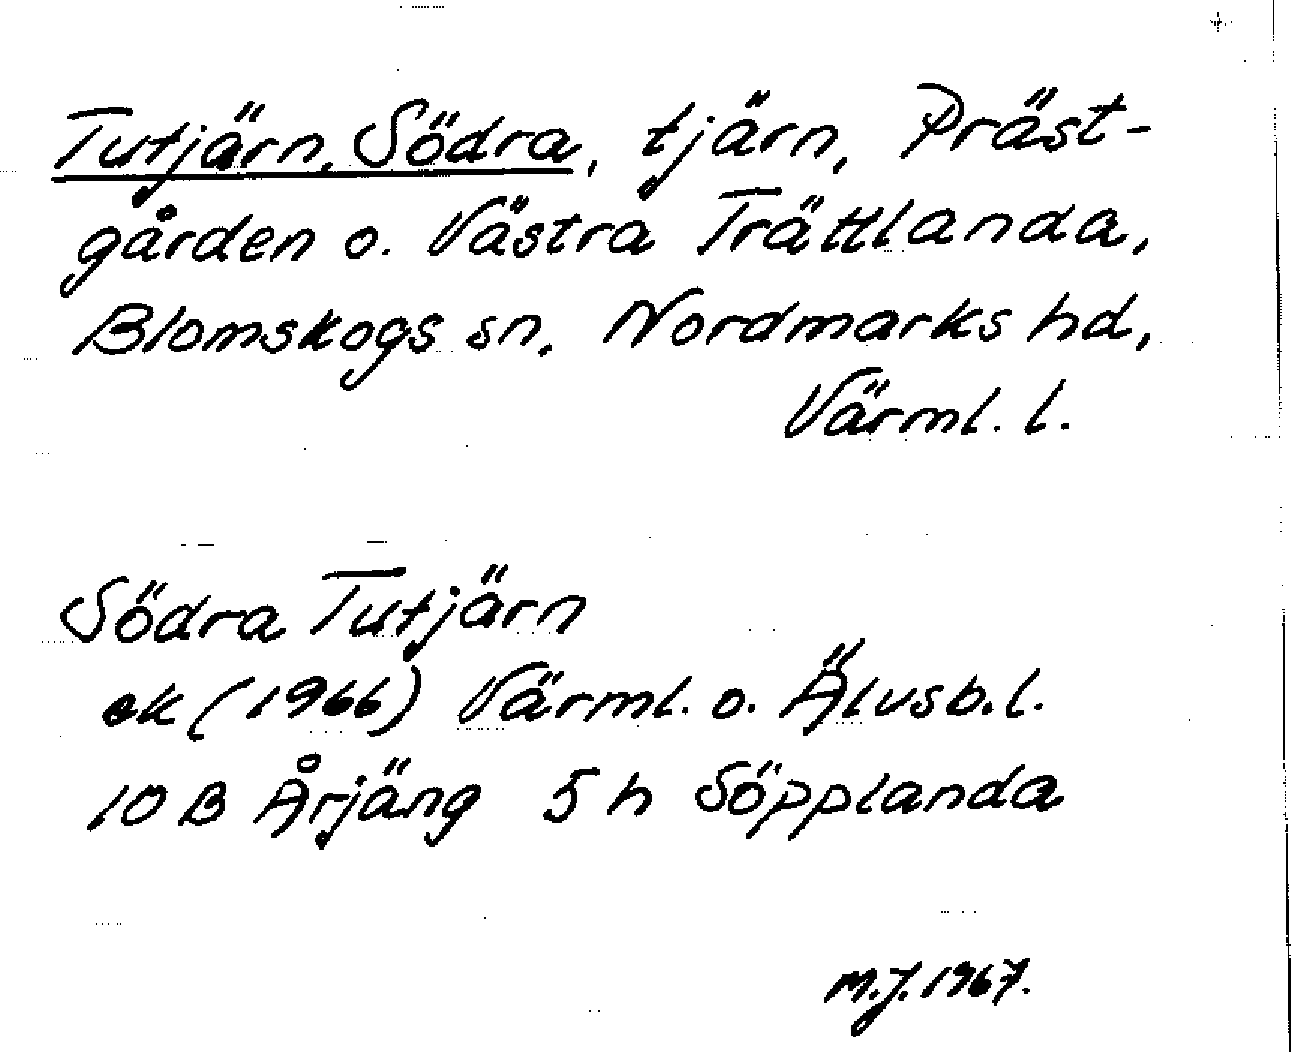 Tutjärn, Södra, tjärn, Präst-
gården o. Västra Trättlanda,
Blomskogs sn, Nordmarks hd,
Värml. l.
Södra Tutjärn
ek (1966) Värml. o. Älvsb. l.
10 B Årjäng 5 h Söpplanda
M.J. 1967.